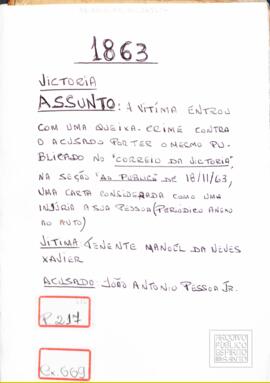 1863
VICTORIA
ASSUNTO: A VITÍMA ENTROU
COM UMA QUEIXA-CRIME CONTRA
O ACUSADO POR TER O MESMO PU-
BLICADO NO "CORREIO DA VICTORIA",
NA SEÇÃO "AO PUBLICO" DE 18/11/63,
UMA CARTA CONSIDERADA COMO UMA
INJÚRIA A SUA PESSOA (PERIODICO ANEXO
AO AUTO)
VITIMA: TENENTE MANOEL DA NEVES
XAVIER
ACUSADO: JOÃO ANTONIO PESSOA JR.
P.217
CX.669
ARQUIVO
PÚBLICO
ESPÍRITO
SANTO